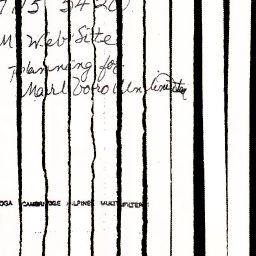 715 3420
M Web Site
Planning for
Marlboro Unlimited
OGA CAMBRIDGE ALPINE MULTIFILTER